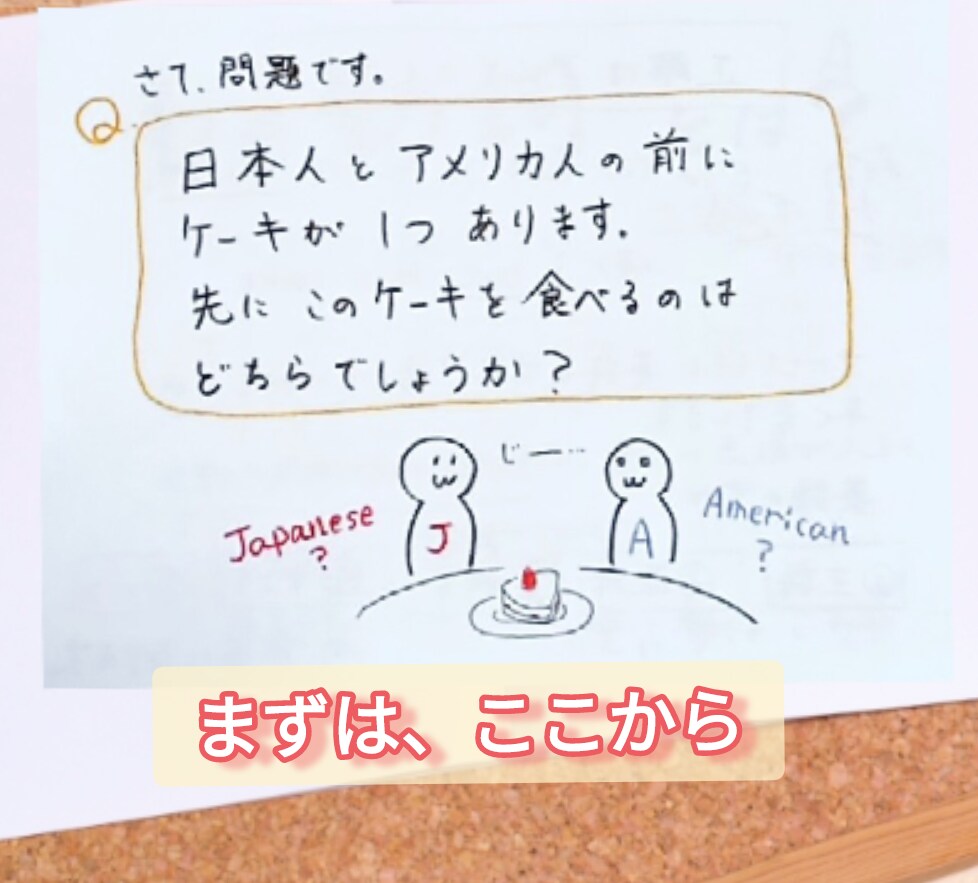 さて、問題です。
Q.
日本人と アメリカ人の 前に
ケーキが 1つ あります。
先に このケーキを 食べるのは
どちらでしょうか?
じー…
Japanese
?
J
A
American
?
まずは、ここから